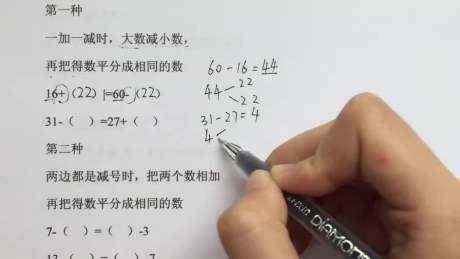 第一种
一加一减时，大数减小数，
再把得数平分成相同的数
16+（22）=60-（22）
31-（ ）=27+（ ）
第二种
两边都是减号时，把两个数相加
再把得数平分成相同的数
7-（ ）=（ ）-3
60-16=44
44 22
22
31-27=4
4
DIAMOND